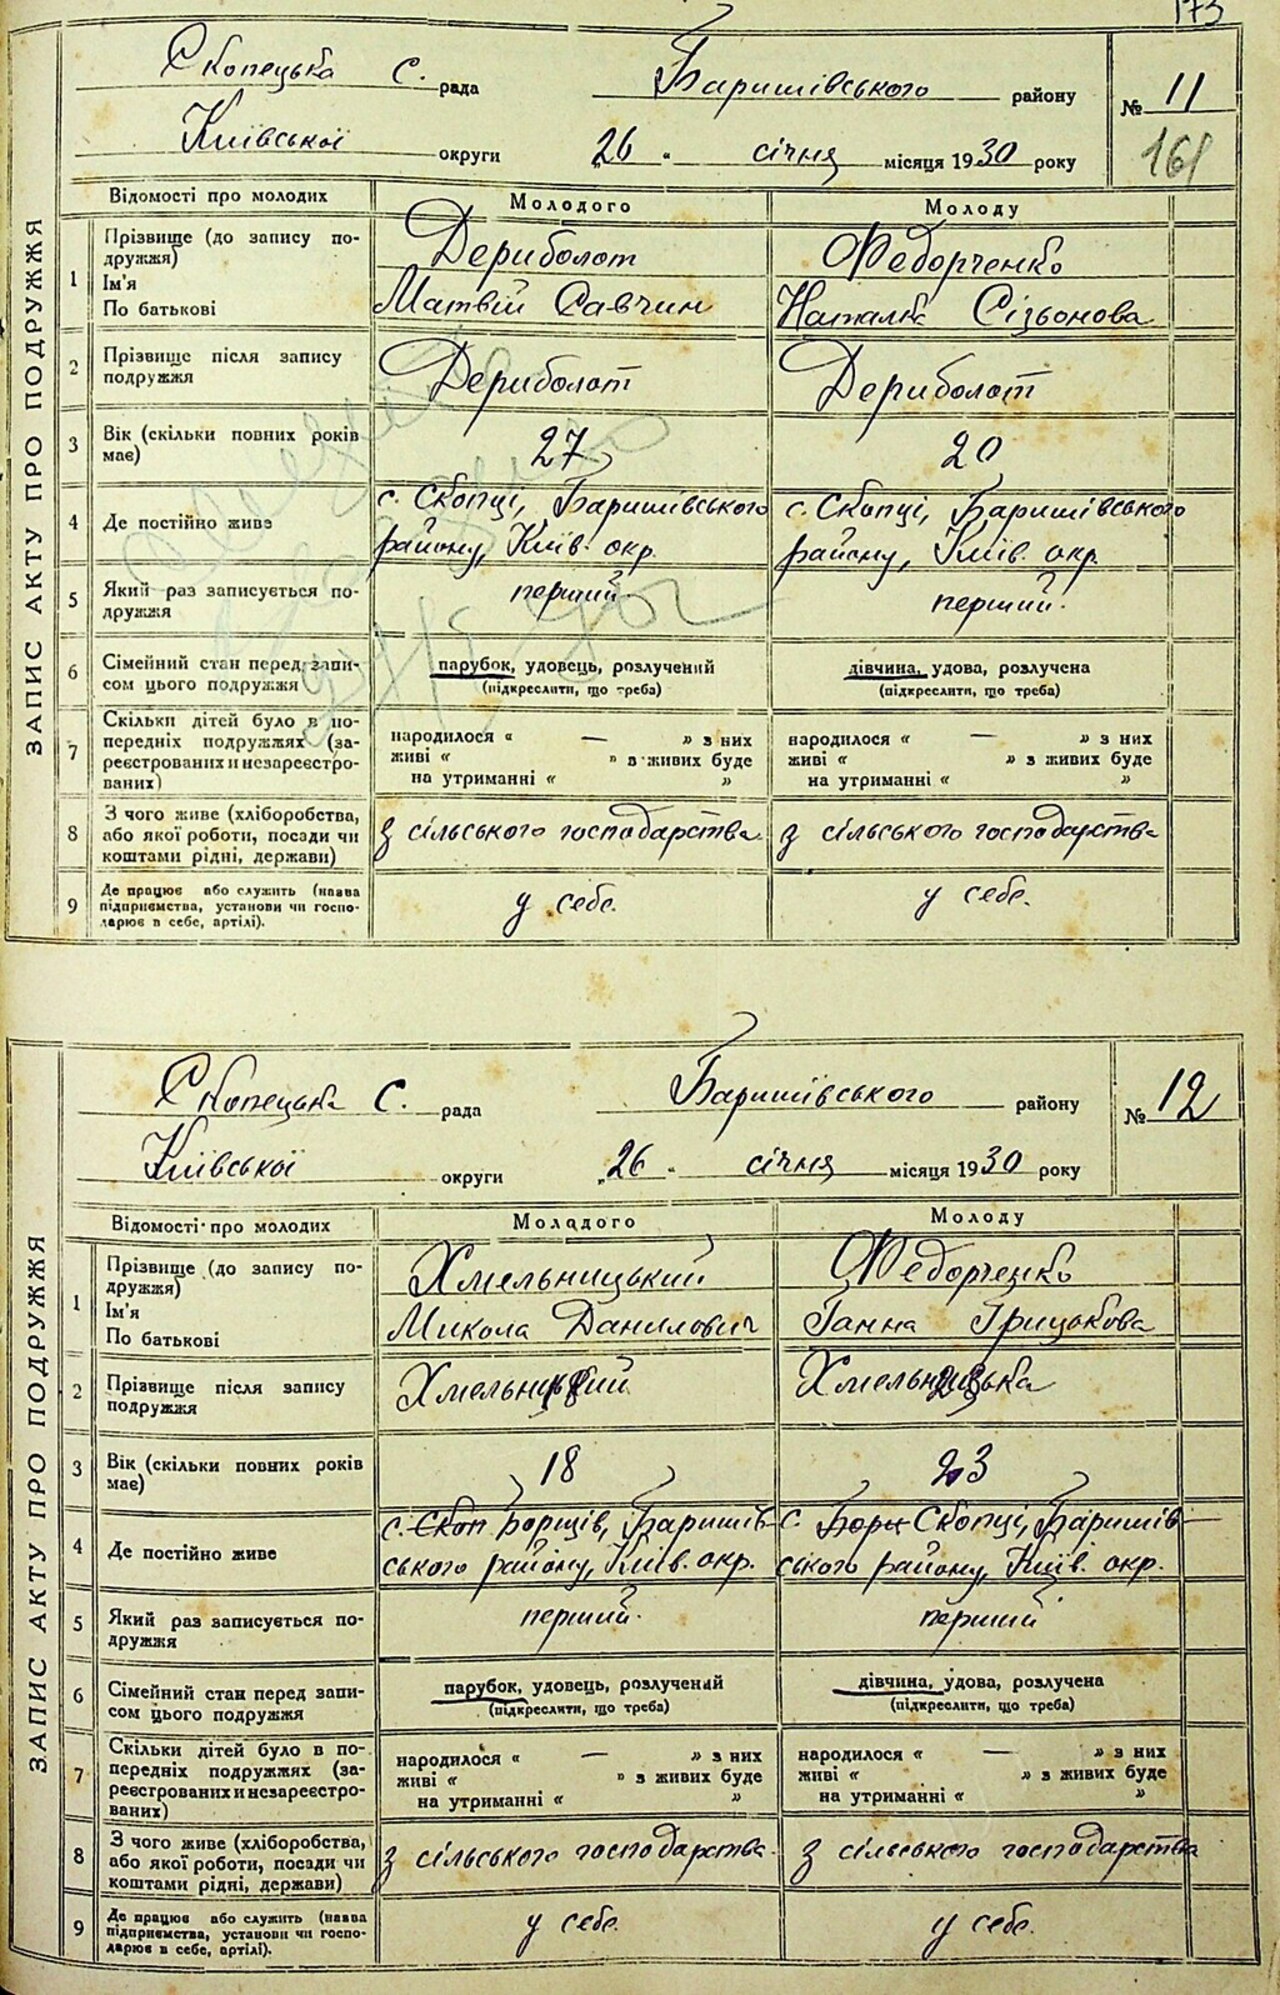 173
Скопецька С. рада Баришівського району № 11
Київської округи „26“ січня місяця 1930 року 161
ЗАПИС АКТУ ПРО ПОДРУЖЖЯ
Відомості про молодих Молодого Молоду
1 Прізвище (до запису по-
дружжя)
Ім'я
По батькові
Дериболот
Матвій Савчин
Федорченко
Наталка Сізьонова
2 Прізвище після запису
подружжя
Дериболот
Дериболот
3 Вік (скільки повних років
має)
27
20
4 Де постійно живе
с. Скопці, Баришівського
району, Київ. окр.
с. Скопці, Баришівського
району, Київ. окр.
5 Який раз записується по-
дружжя
перший.
перший.
6 Сімейний стан перед запи-
сом цього подружжя
парубок, удовець, розлучений
(підкреслити, що треба)
дівчина, удова, розлучена
(підкреслити, що треба)
7 Скільки дітей було в по-
передніх подружжях (за-
реєстрованих и незареєстро-
ваних)
народилося « — » з них
живі « » з живих буде
на утриманні « »
народилося « — » з них
живі « » з живих буде
на утриманні « »
8 З чого живе (хліборобства,
або якої роботи, посади чи
коштами рідні, держави)
З сільського господарства.
З сільського господарства
9 Де працює або служить (назва
підприємства, установи чи госпо-
дарює в себе, артілі).
у себе.
у себе.
Скопецька С. рада Баришівського району № 12
Київської округи „26“ січня місяця 1930 року
ЗАПИС АКТУ ПРО ПОДРУЖЖЯ
Відомості про молодих Молодого Молоду
1 Прізвище (до запису по-
дружжя)
Ім'я
По батькові
Хмельницький
Микола Данилович
Федорченко
Ганна Грицькова
2 Прізвище після запису
подружжя
Хмельницький
Хмельницька
3 Вік (скільки повних років
має)
18
23
4 Де постійно живе
с. Скоп Борщів, Баришів-
ського району, Київ. окр.
с. Борщ Скопці, Баришів-
ського району, Київ. окр.
5 Який раз записується по-
дружжя
перший.
перший
6 Сімейний стан перед запи-
сом цього подружжя
парубок, удовець, розлучений
(підкреслити, що треба)
дівчина, удова, розлучена
(підкреслити, що треба)
7 Скільки дітей було в по-
передніх подружжях (за-
реєстрованих и незареєстро-
ваних)
народилося « — » з них
живі « » з живих буде
на утриманні « »
народилося « — » з них
живі « » з живих буде
на утриманні « »
8 З чого живе (хліборобства,
або якої роботи, посади чи
коштами рідні, держави)
З сільського господарства.
З сільського господарства
9 Де працює або служить (назва
підприємства, установи чи госпо-
дарює в себе, артілі).
у себе.
у себе.